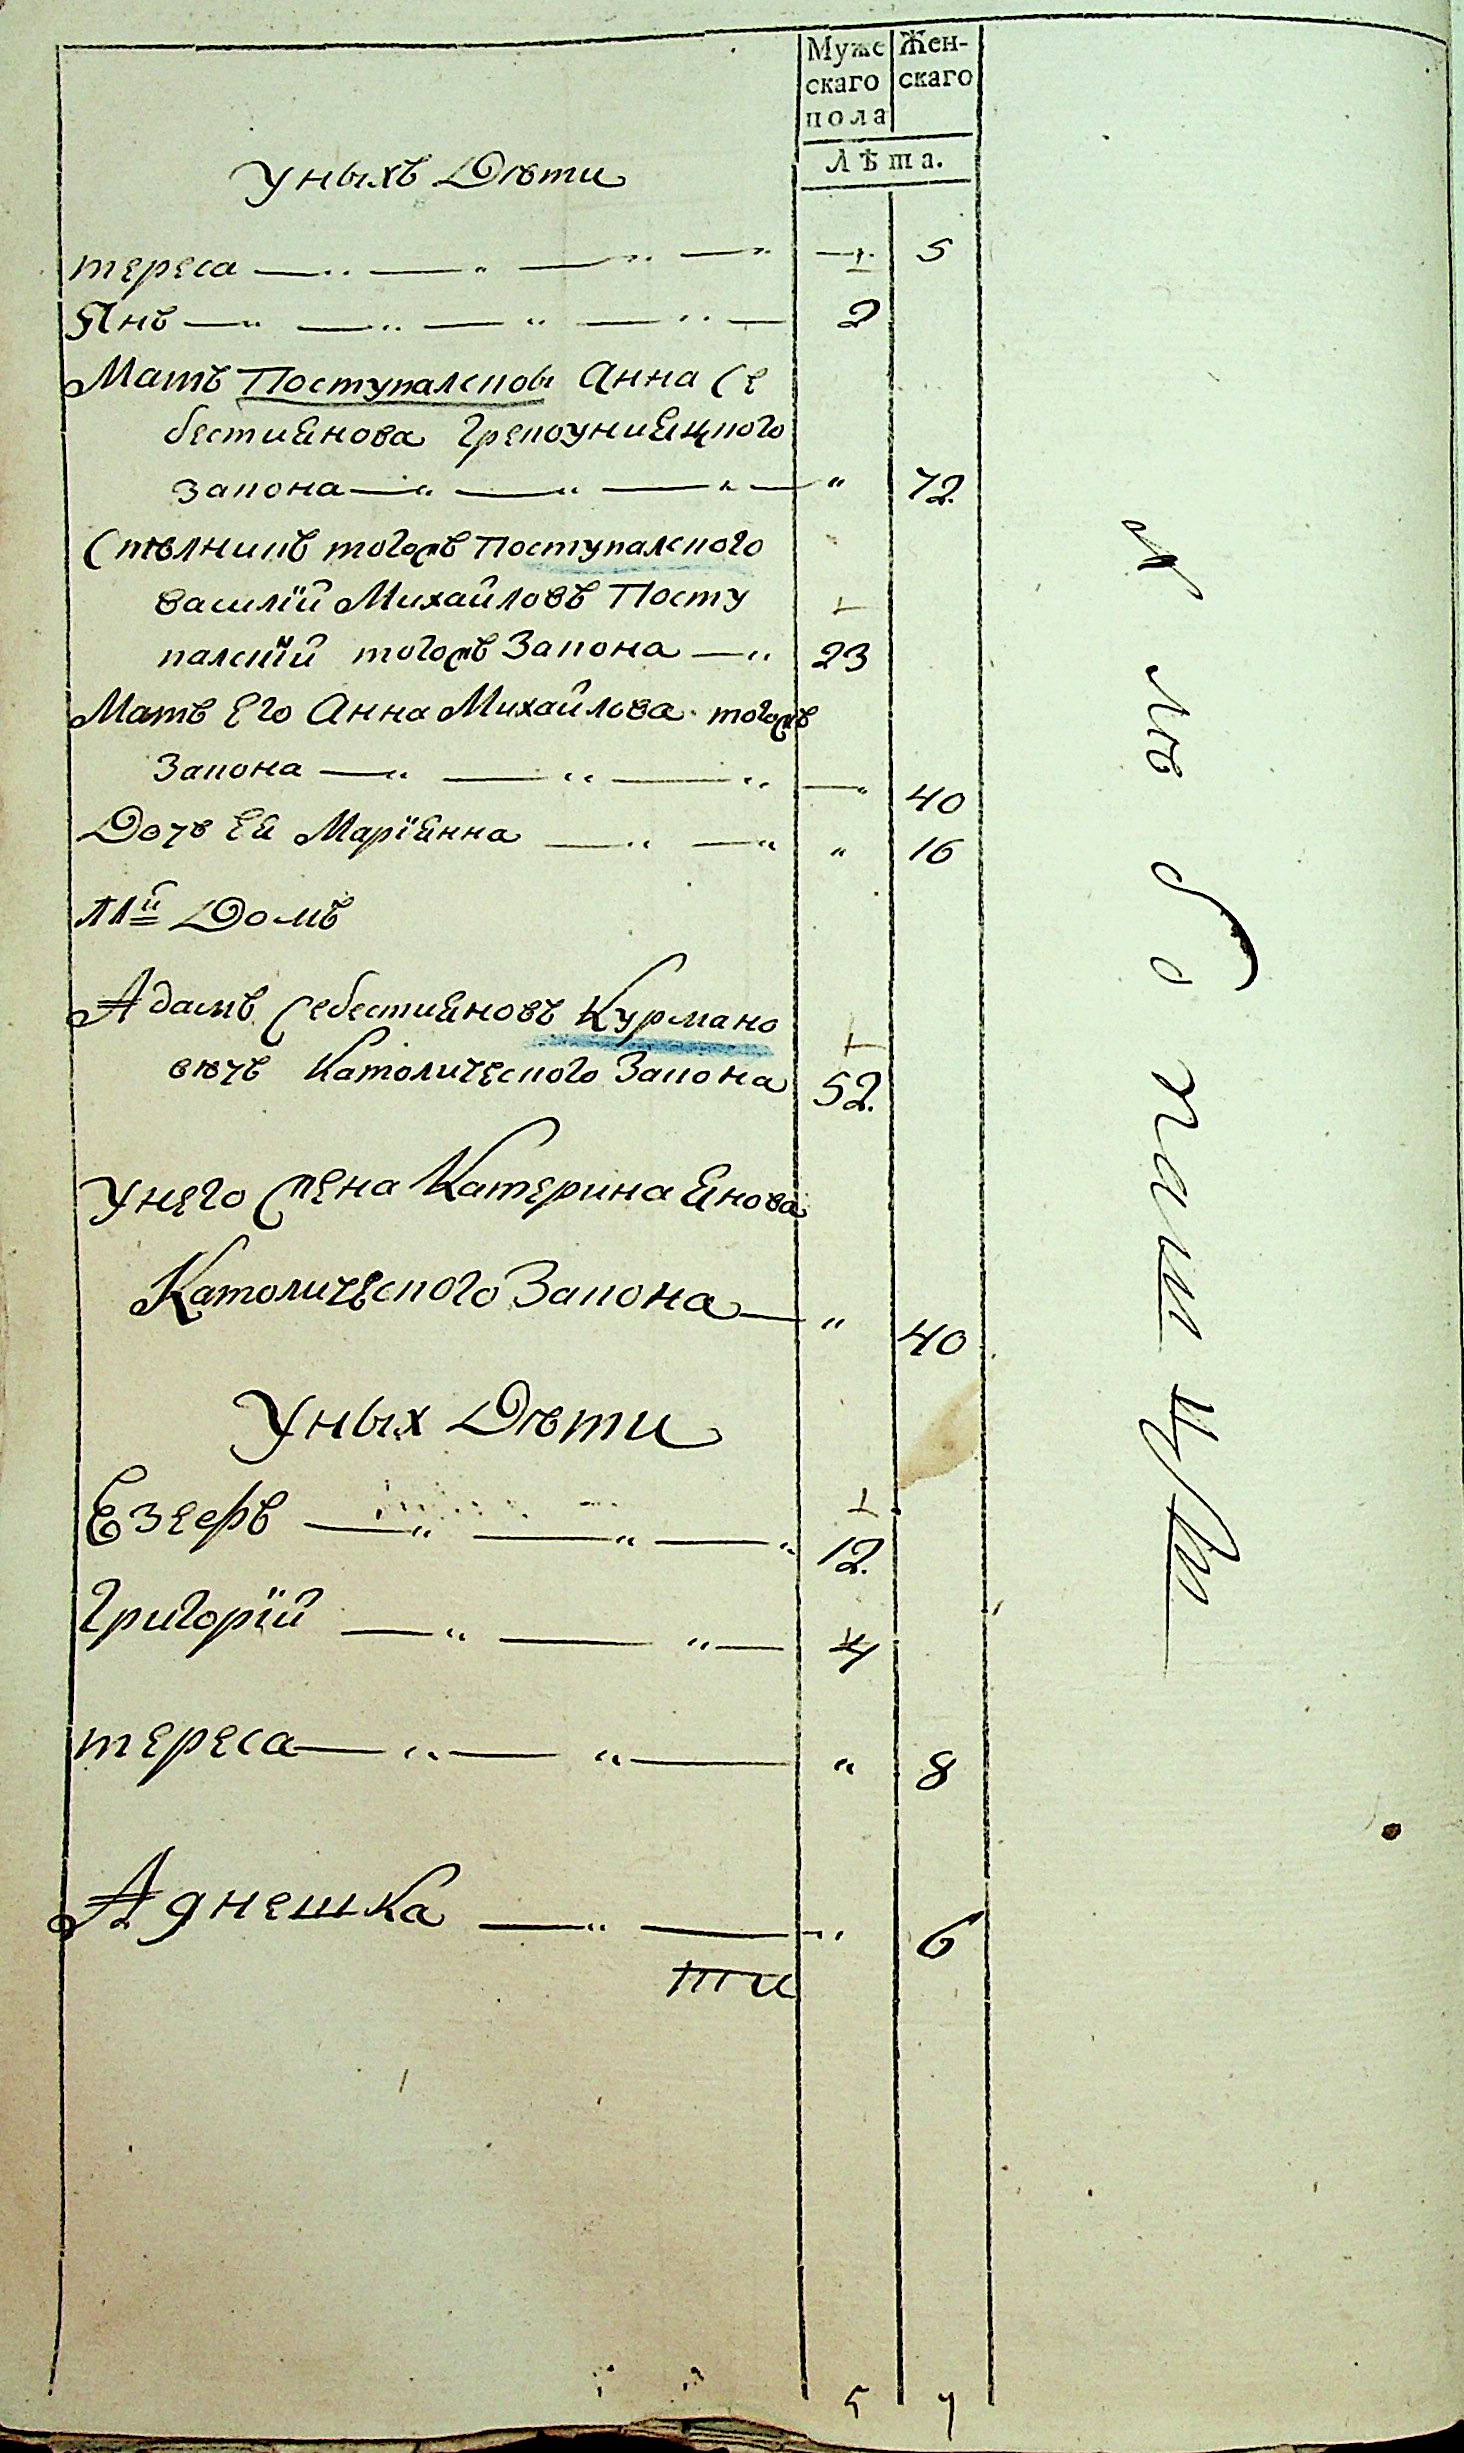 Муже Жен-
скаго скаго
пола
Лѣта.
Уныхъ Дѣти
тереса 5
Янъ 2
Мать Поступалсков Анна Се
бестиянова Грекоунияцкого
закона " 72
Стрлникъ тогожъ Поступалского
василій Михайловъ Посту
палскій тогожъ Закона 23
Мать Его Анна Михайлова тогожъ
Закона 40
Дочъ Ея Маріянна " 16
й Домъ
Адамъ Себестияновъ Курмано
вѣчъ Католического Закона 52.
Унего Жена Катерина Янова
Католического Закона " 40
Уныхъ Дѣти
Езефъ 12.
Григорій 4
тереса " 8
Агнешка " 6
ти
5